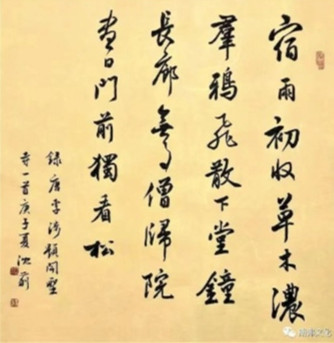 宿雨初收草木濃
羣鴉飛散下堂鐘
長廊無事僧歸院
盡日門前獨看松
錄唐李涉題開聖
寺一首庚子夏沈